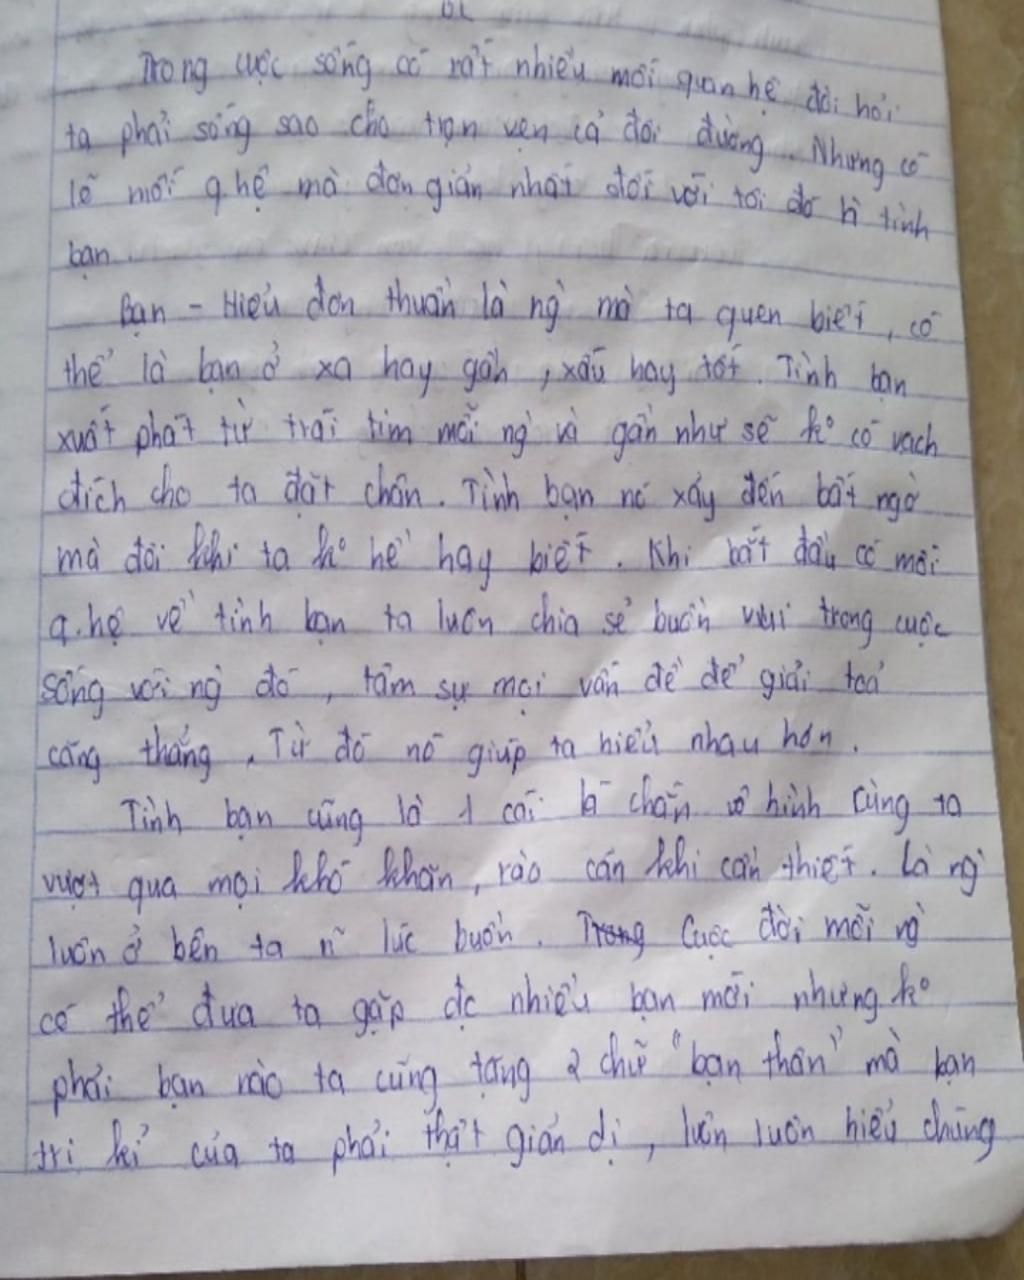 BL
Trong cuộc sống có rất nhiều mối quan hệ đòi hỏi
ta phải sống sao cho trọn vẹn cả đôi đường. Nhưng có
lẽ mối q.hệ mà đơn giản nhất đối với tôi đó là tình
bạn.
Bạn - Hiểu đơn thuần là ng` mà ta quen biết, có
thể là bạn ở xa hay gần, xấu hay tốt. Tình bạn
xuất phát từ trái tim mỗi ng` và gần như sẽ ko có vạch
đích cho ta đặt chân. Tình bạn nó xảy đến bất ngờ
mà đôi khi ta ko hề hay biết. Khi bắt đầu có mối
q.hệ về tình bạn ta luôn chia sẻ buồn vui trong cuộc
sống với ng` đó, tâm sự mọi vấn đề để giải toả
căng thẳng. Từ đó nó giúp ta hiểu nhau hơn.
Tình bạn cũng là 1 cái lá chắn vô hình cùng ta
vượt qua mọi khó khăn, rào cản khi cần thiết. Là ng`
luôn ở bên ta n~ lúc buồn. Trong Cuộc đời mỗi ng`
có thể đưa ta gặp đc nhiều bạn mới nhưng ko
phải bạn nào ta cũng tặng 2 chữ "bạn thân" mà bạn
tri kỉ của ta phải thật giản dị, luôn luôn hiểu chúng